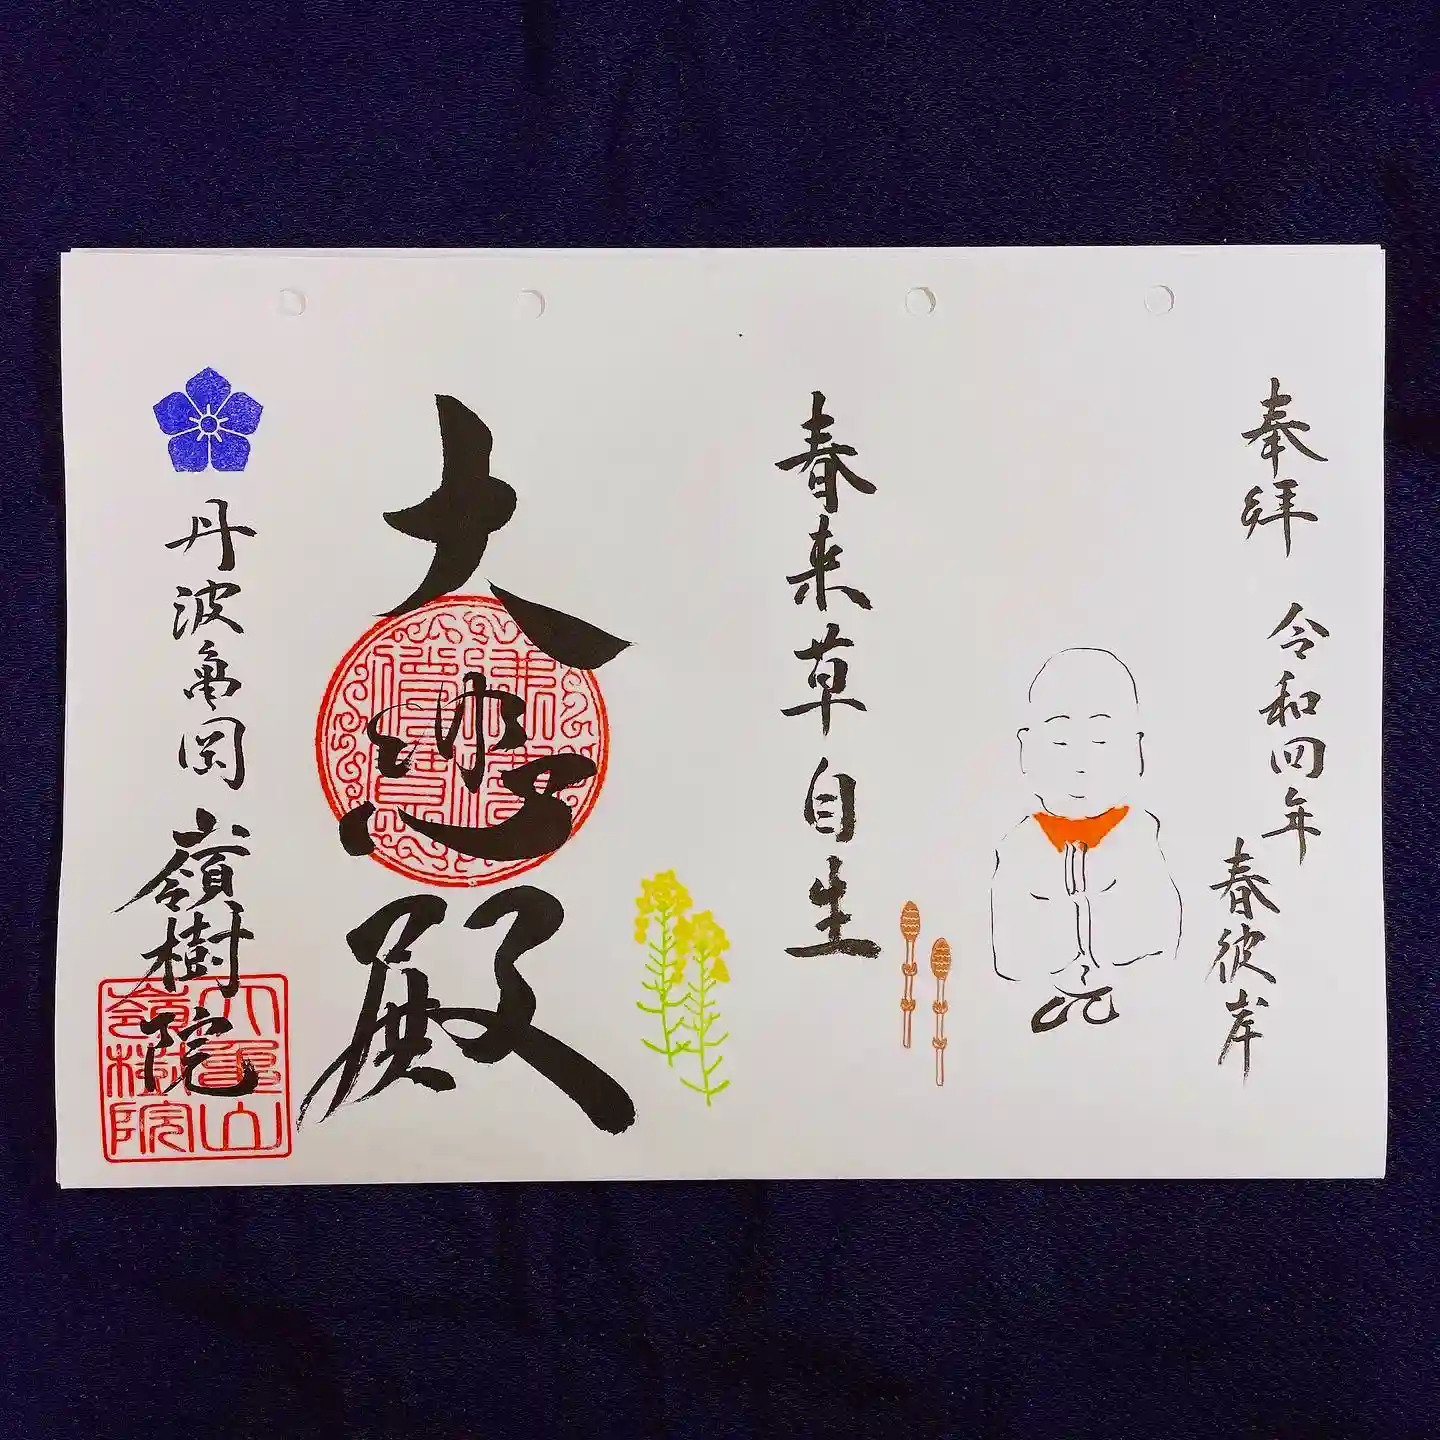 奉拝
令和四年
春彼岸
春来草自生
大悲殿
丹波亀岡
嶺樹院
嶺樹院